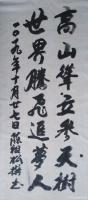 高山立參天樹
世界騰飛追夢人
二〇一九年十月廿七日松樹書